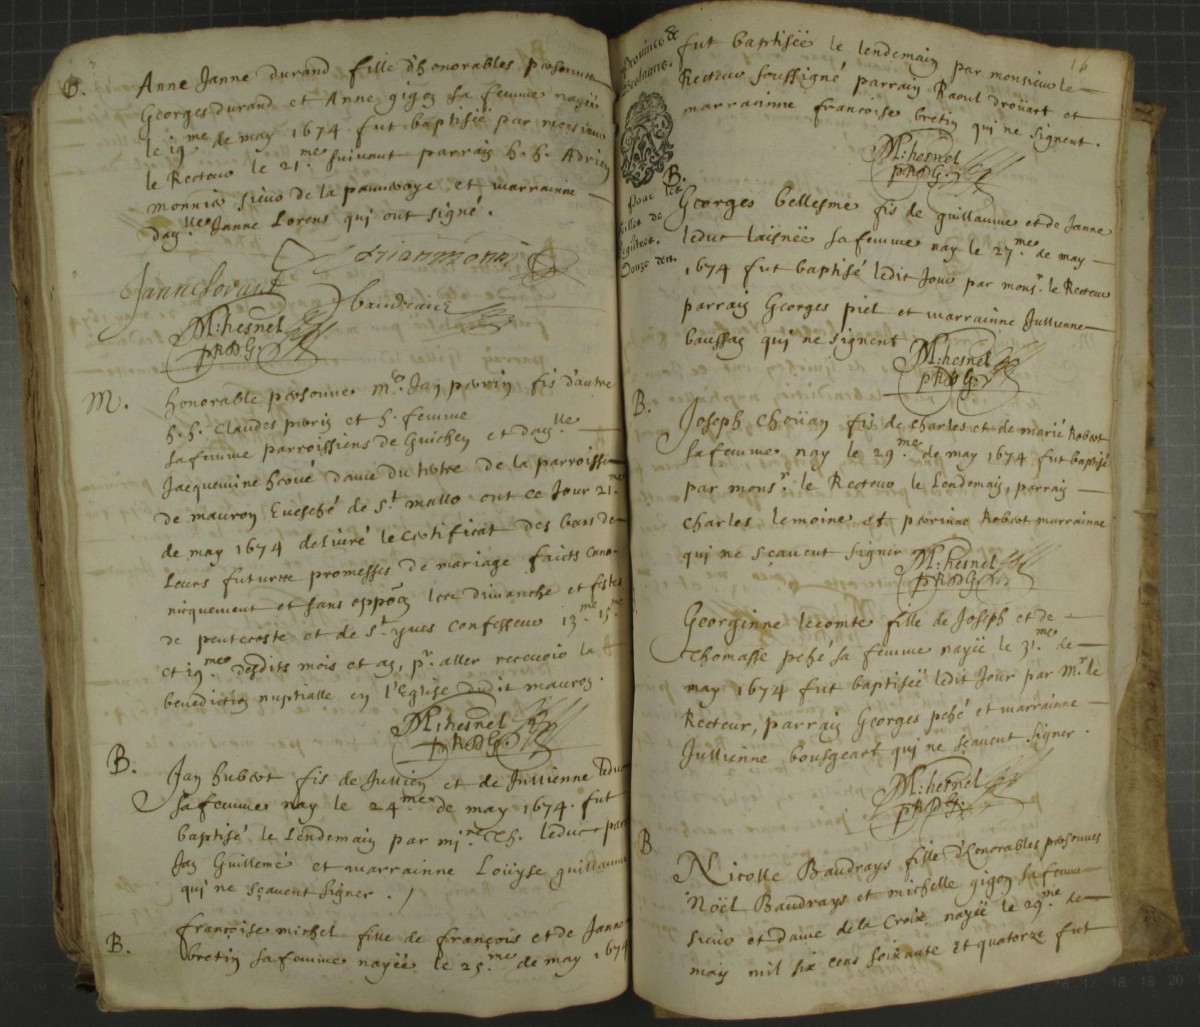 B. Anne Janne durand fille d'honorables personnes
Georges durand et Anne gigon sa femme nayëe
le 19.me de may 1674 fut baptisëe par monsieur
le Recteur le 21.me suivant parrain h. h. Adrien
monnir sieur de la et marrainne
dam.lle Janne Lorens qui ont signé.
Janne Lorant
baudraix
M: hesnel
pR D G.
M. honorable personne m.e Jan perrin fis d'autre
h. h. Claudes perrin et h. femme
sa femme parroissiens de Guichen et dam.lle
Jacquemine houé dame du tertre de la parroisse
de mauron Evesché de S.t mallo ont ce Jour 21.me
de may 1674 delivré le certificat des bans de
Leurs futures promesses de mariage faicts cano-
nicquement et sans oppōn les dimanche et festes
de pentecoste et de S.t yves confesseur 13.me 15.me
et 19.me desdits mois et an, p.r aller recevoir la
benediction nuptialle en l'Eglise dudit mauron.
M: hesnel
pR D G.
B. Jan hubert fis de Jullien et de Jullienne leduc
sa femme nay le 24.me de may 1674. fut
baptisé le Lendemain par mi.re Ch. leduc par
Jan Guillemé et marrainne Loüyse guillaume
qui ne sçavent signer.
B. françoise michel fille de françois et de Janne
bretin sa femme nayëe le 25.me de may 1674
16
Province de
Bretaigne.
Pour les
Billet de
Registres.
Douze den.
fut baptisëe le lendemain par monsieur le
Recteur soussigné parrain Raoul droüart et
marrainne francoise bretin qui ne signent.
M: hesnel
pR D G.
B. Georges bellesme fis de guillaume et de Janne
leduc laisnée sa femme nay le 27.me de may
1674 fut baptisé ledit jour par mons.r le Recteur
parrain Georges piel et marrainne Jullienne
baussan qui ne signent
M: hesnel
pR D G.
B. Joseph Choüan fis de charles et de marie Robert
sa femme nay le 29.me de may 1674 fut baptisé
par mons.r le Recteur le Lendemain, parrain
charles lemoine et perrinne Robert marrainne
qui ne sçavent signer
M: hesnel
pR D G.
Georginne lecomte fille de Joseph et de
Thomasse pché sa femme nayëe le 31.me de
may 1674 fut baptisëe ledit Jour par M.r le
Recteur, parrain Georges pché et marrainne
Jullienne bousgeart qui ne sçavent signer.
M: hesnel
pR D G.
B. Nicolle Baudrays fille d'honorables personnes
Nöël Baudrays et michelle gigon sa femme
sieur et dame de la Croix nayëe le 29.me de
may mil six cens soixante et quatorze fut